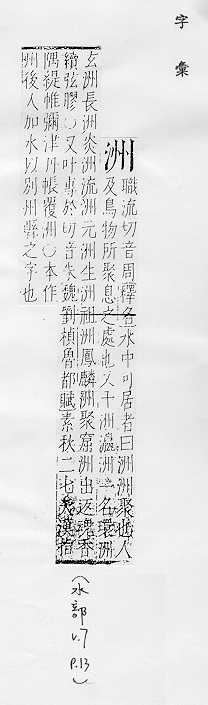 字彙
洲 職流切音周釋名水中可居者曰洲洲聚也人
及鳥物所聚息之處也又十洲瀛洲一名環洲
玄洲長洲炎洲流洲元洲生洲祖洲鳳麟洲聚窟洲出返魂香
續弦膠○又叶專於切音朱魏劉楨魯都賦素秋二七天漢指
隅緹帷彌津丹帳覆洲○本作
州後人加水以別州縣之字也
(水部
v.7
p.13)